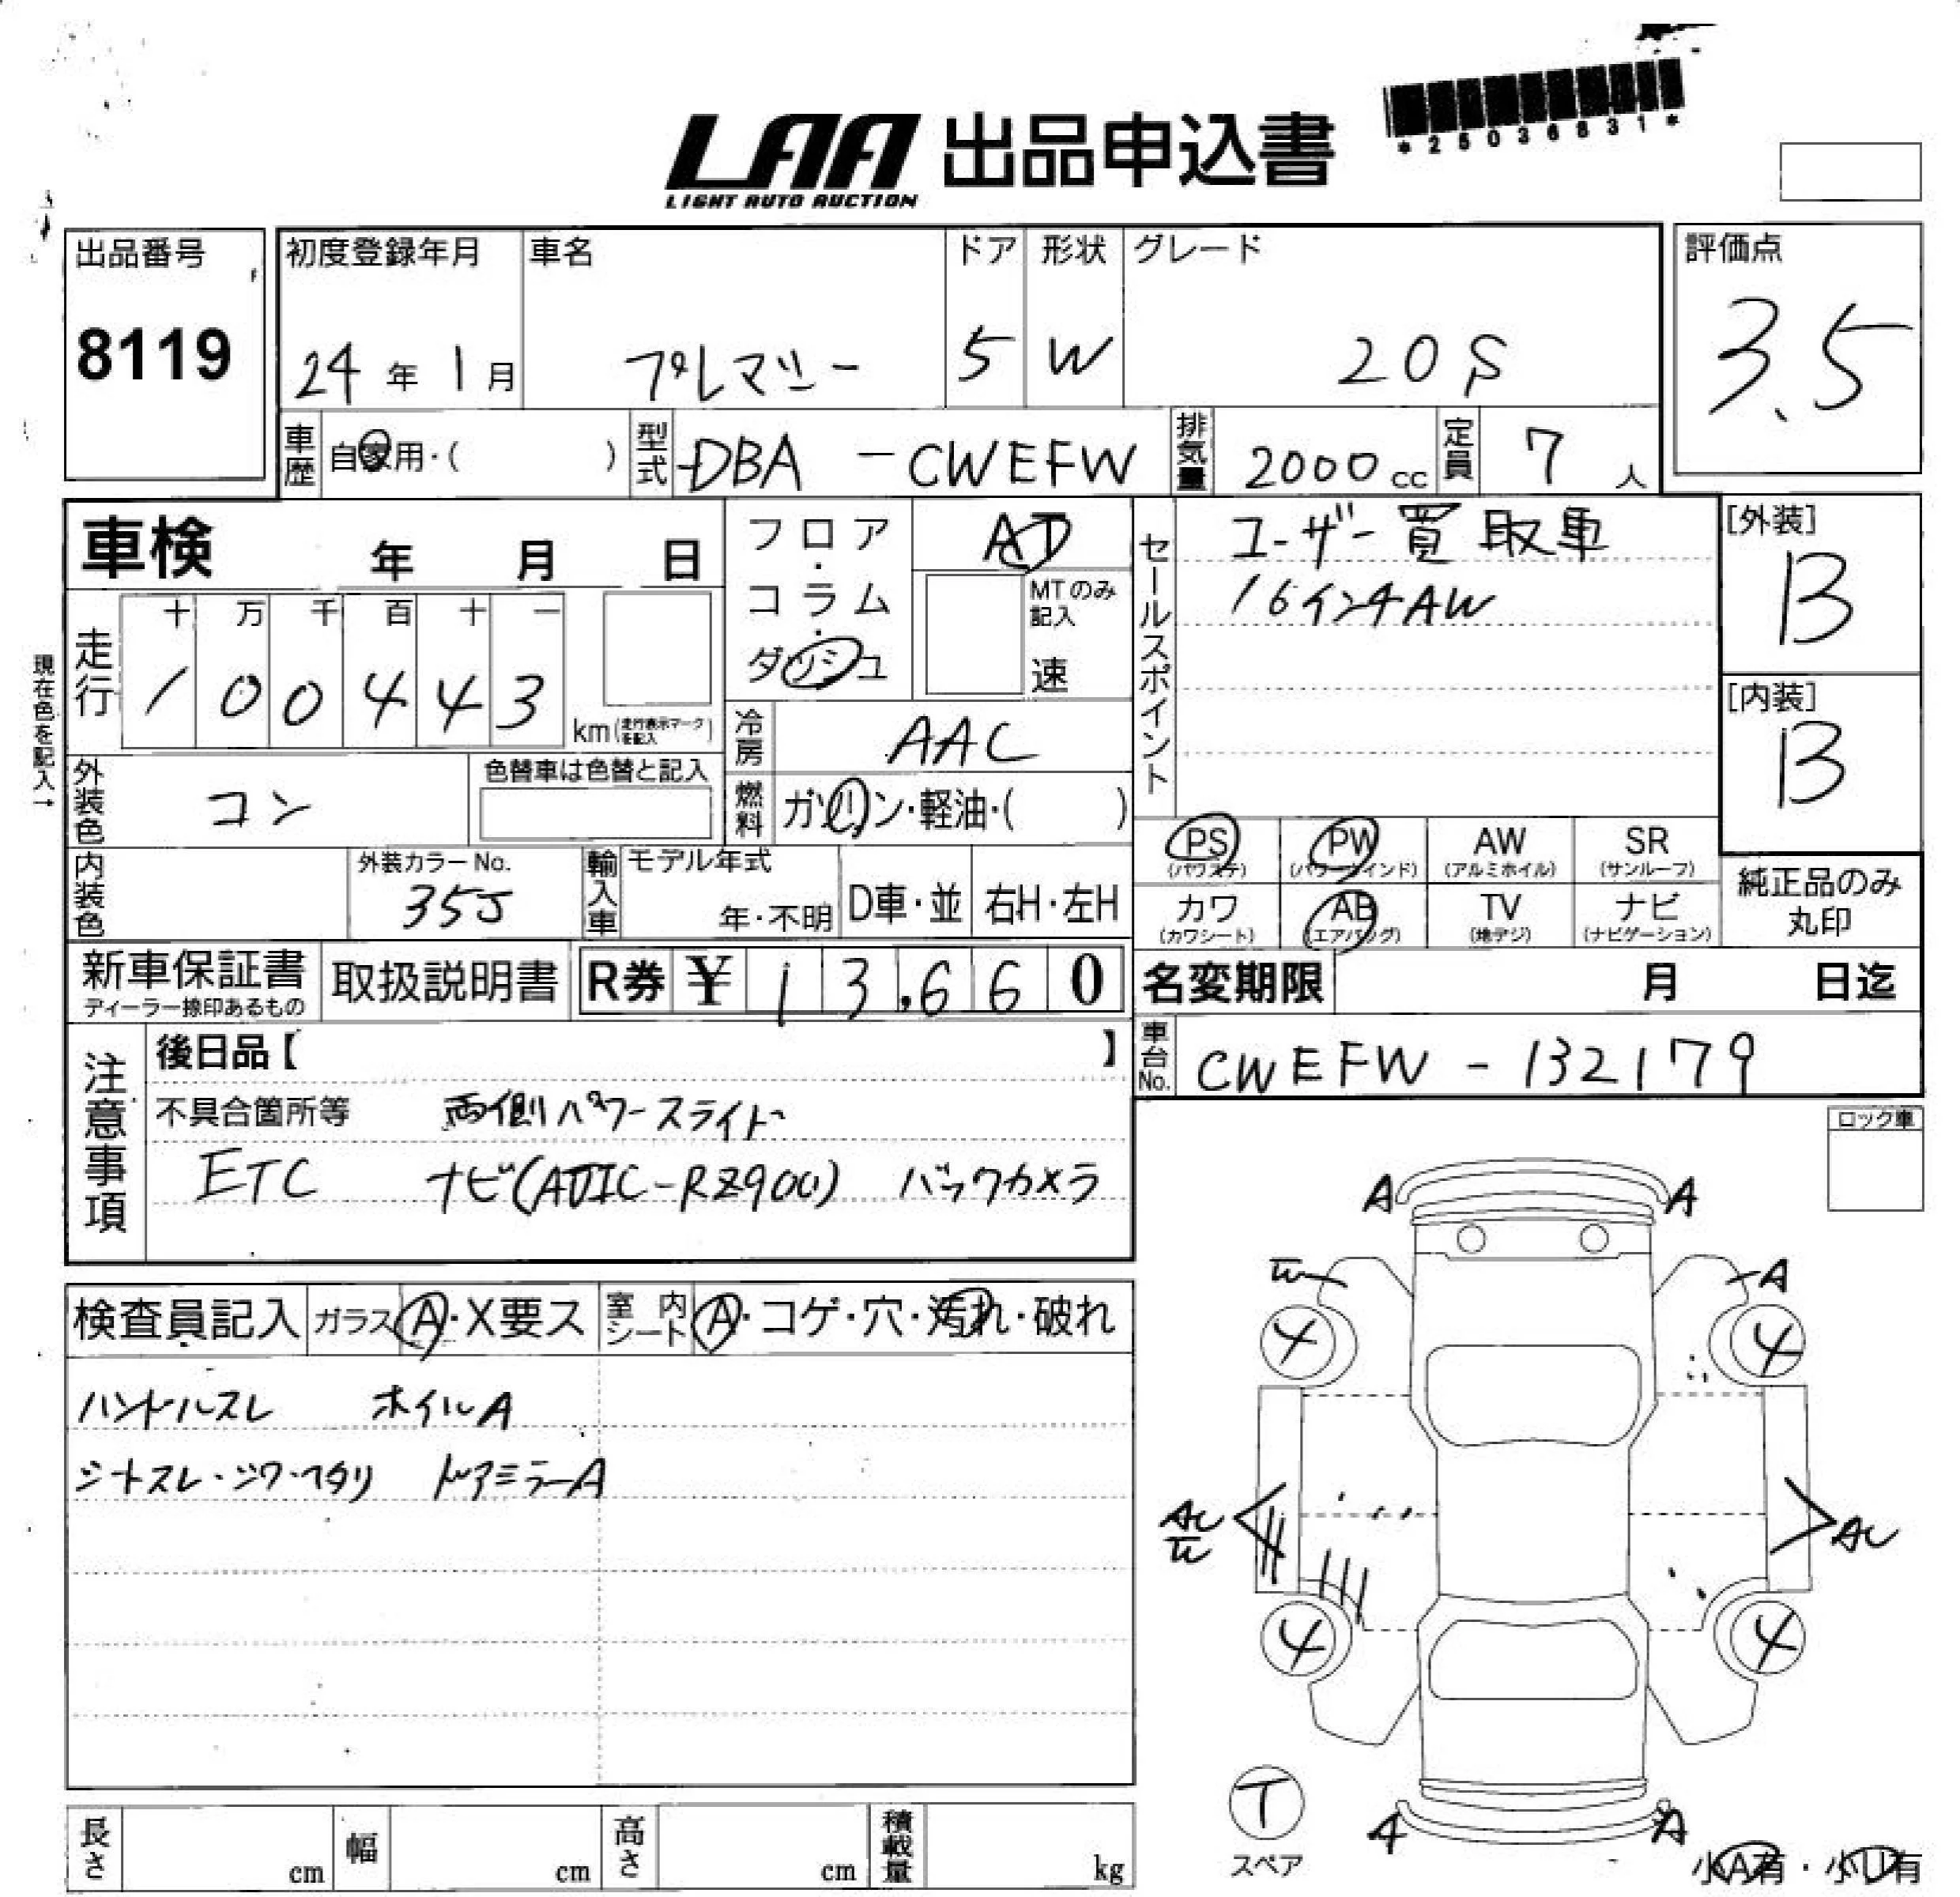 LAA 出品申込書
LIGHT AUTO AUCTION
*25036831*
出品番号
8119
初度登録年月 車名 ドア 形状 グレード
24年 1月 プレマシー 5 W 20S
評価点
3.5
車歴 自家用・( ) 型式 DBA-CWEFW 排気量 2000cc 定員 7人
車検 年 月 日
フロア・コラム・ダッシュ
AT
MTのみ記入
速
セールスポイント
ユーザー買取車
16インチAW
[外装]
B
[内装]
B
現在色を記入→
走行 十 万 千 百 十 一
1 0 0 4 4 3
km (走行表示マークを記入)
冷房 AAC
外装色 コン
色替車は色替と記入
燃料 ガソリン・軽油・( )
内装色
外装カラーNo.
35J
輸入車 モデル年式
年・不明 D車・並 右H・左H
PS (パワステ) PW (パワーウインド) AW (アルミホイル) SR (サンルーフ)
カワ (カワシート) AB (エアバッグ) TV (地デジ) ナビ (ナビゲーション)
純正品のみ
丸印
新車保証書
ディーラー捺印あるもの
取扱説明書
R券 ¥ 13,660
名変期限 月 日迄
車台No. CWEFW-132179
注意事項
後日品【 】
不具合箇所等 両側パワースライド
ETC ナビ(AVIC-RZ900) バックカメラ
ロック車
A A
W A
4 4
検査員記入 ガラス A・X要ス 室内シート A・コゲ・穴・汚れ・破れ
ハンドルスレ ホイルA
シートスレ・シワ・ヘタリ ドアミラーA
AU AU
4 4
T
スペア
A A
小A有・小U有
長さ cm 幅 cm 高さ cm 積載量 kg